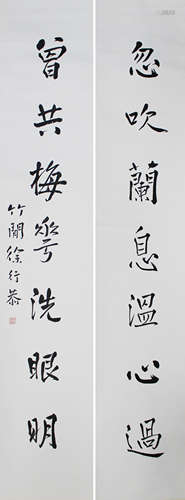 忽吹蘭息溫心過
曾共梅雩洗眼明
竹閒徐行恭